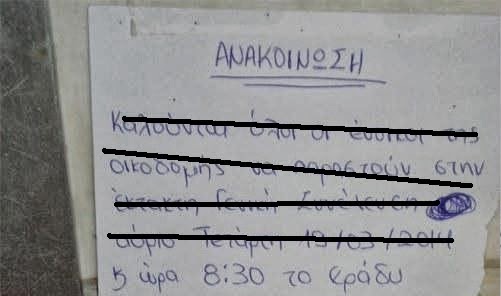 ΑΝΑΚΟΙΝΩΣΗ
Καλούνται όλοι οι ένοικοι της
οικοδομής να παραστούν στην
έκτακτη Γενική Συνέλευση
αύριο Τετάρτη 19/03/2014
ώρα 8:30 το βράδυ